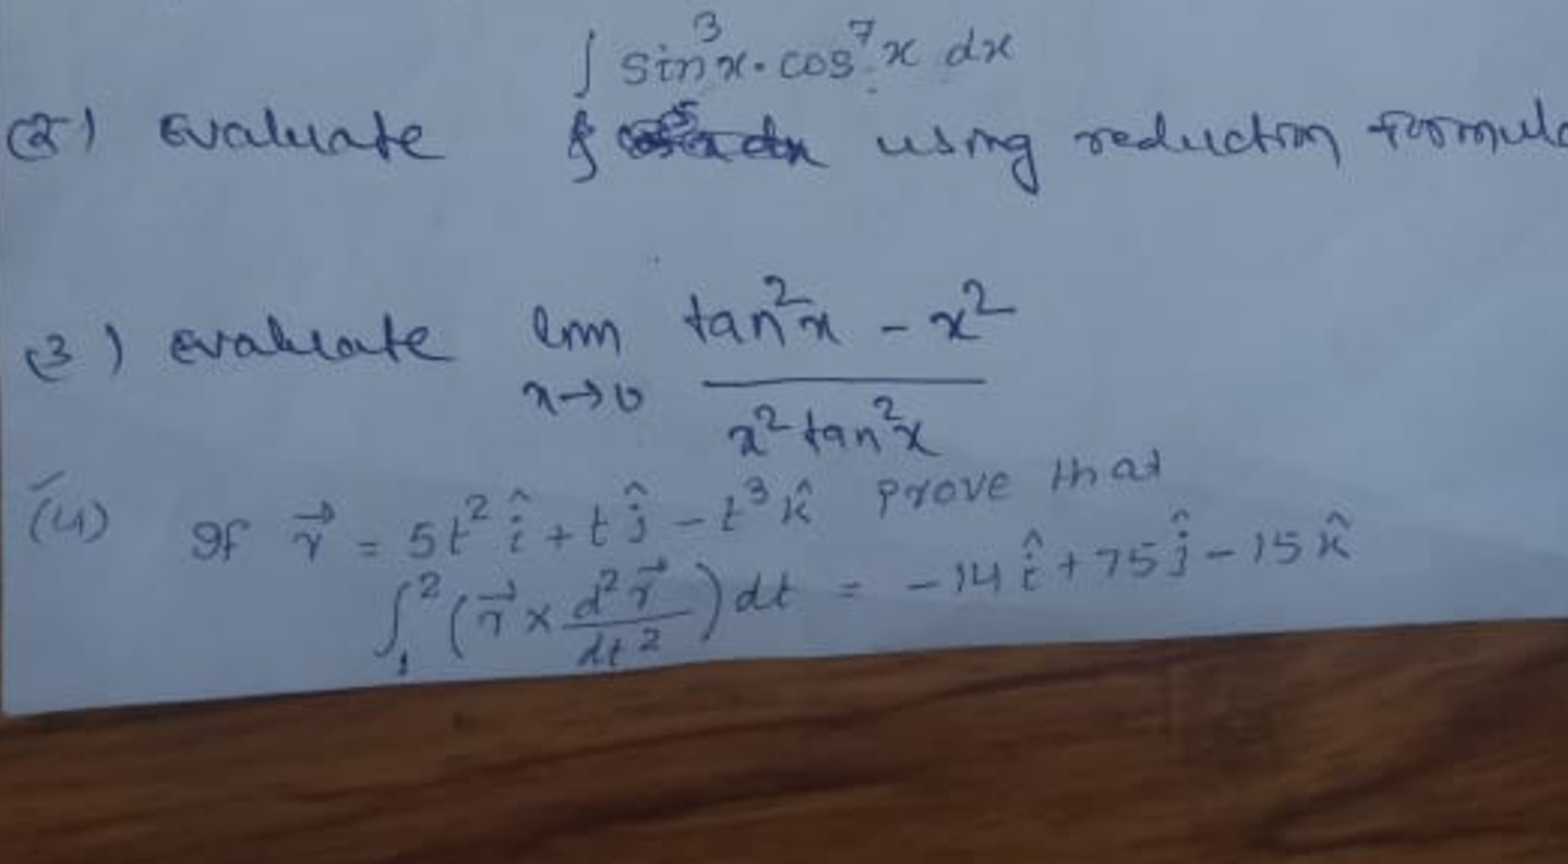 ∫ sin³x · cos⁷x dx
(2) Evaluate ∫ using reduction formula
(3) evaluate lim x→0 (tan²x - x²) / (x² tan²x)
(4) If r⃗ = 5t² î + t ĵ - t³ k̂ prove that
∫₁² (r⃗ × d²r⃗/dt²) dt = -14 î + 75 ĵ - 15 k̂